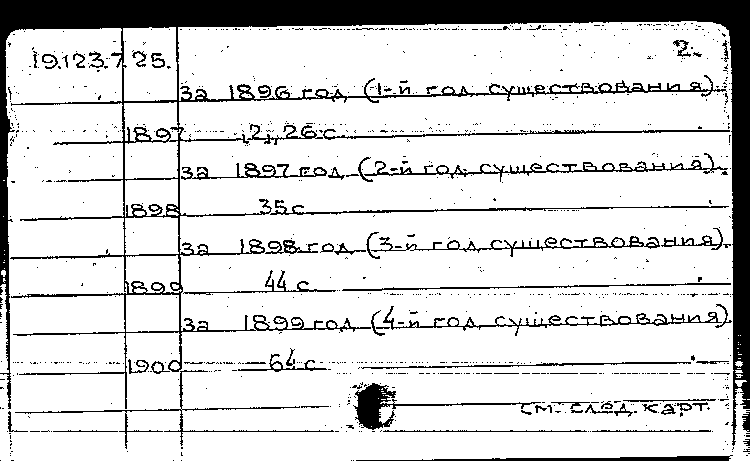 19.123.7.25. 2.
за 1896 год (1-й год существования).
1897 , 26 с.
за 1897 год (2-й год существования).
1898. 35 с.
за 1898 год (3-й год существования).
1899 44 с.
за 1899 год (4-й год существования)
1900 64 с.
см. след. карт.